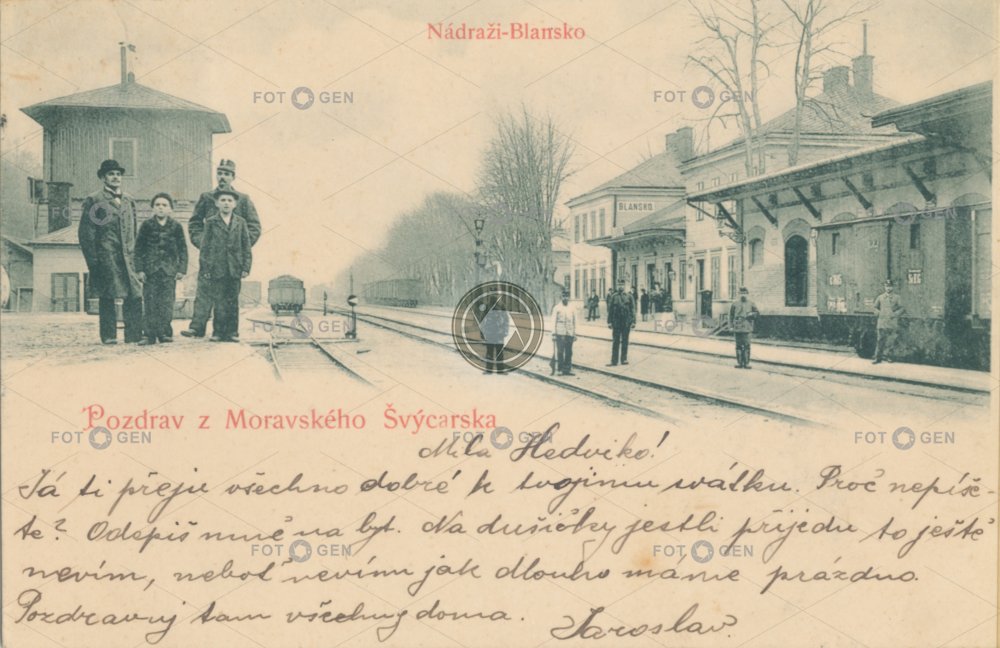 Nádraži-Blansko
FOTOGEN FOTOGEN
BLANSKO.
Pozdrav z Moravského Švýcarska
FOTOGEN FOTOGEN FOTOGEN
Milá Hedviko!
Já ti přeju všechno dobré k tvojimu svátku. Proč nepíše-
te? Odepiš mně na byt. Na dušičky jestli přijedu to ještě
FOTOGEN FOTOGEN
nevím, neboť nevímu jak dlouho máme prázdno.
Pozdravuj tam všechny doma.
Jaroslav.